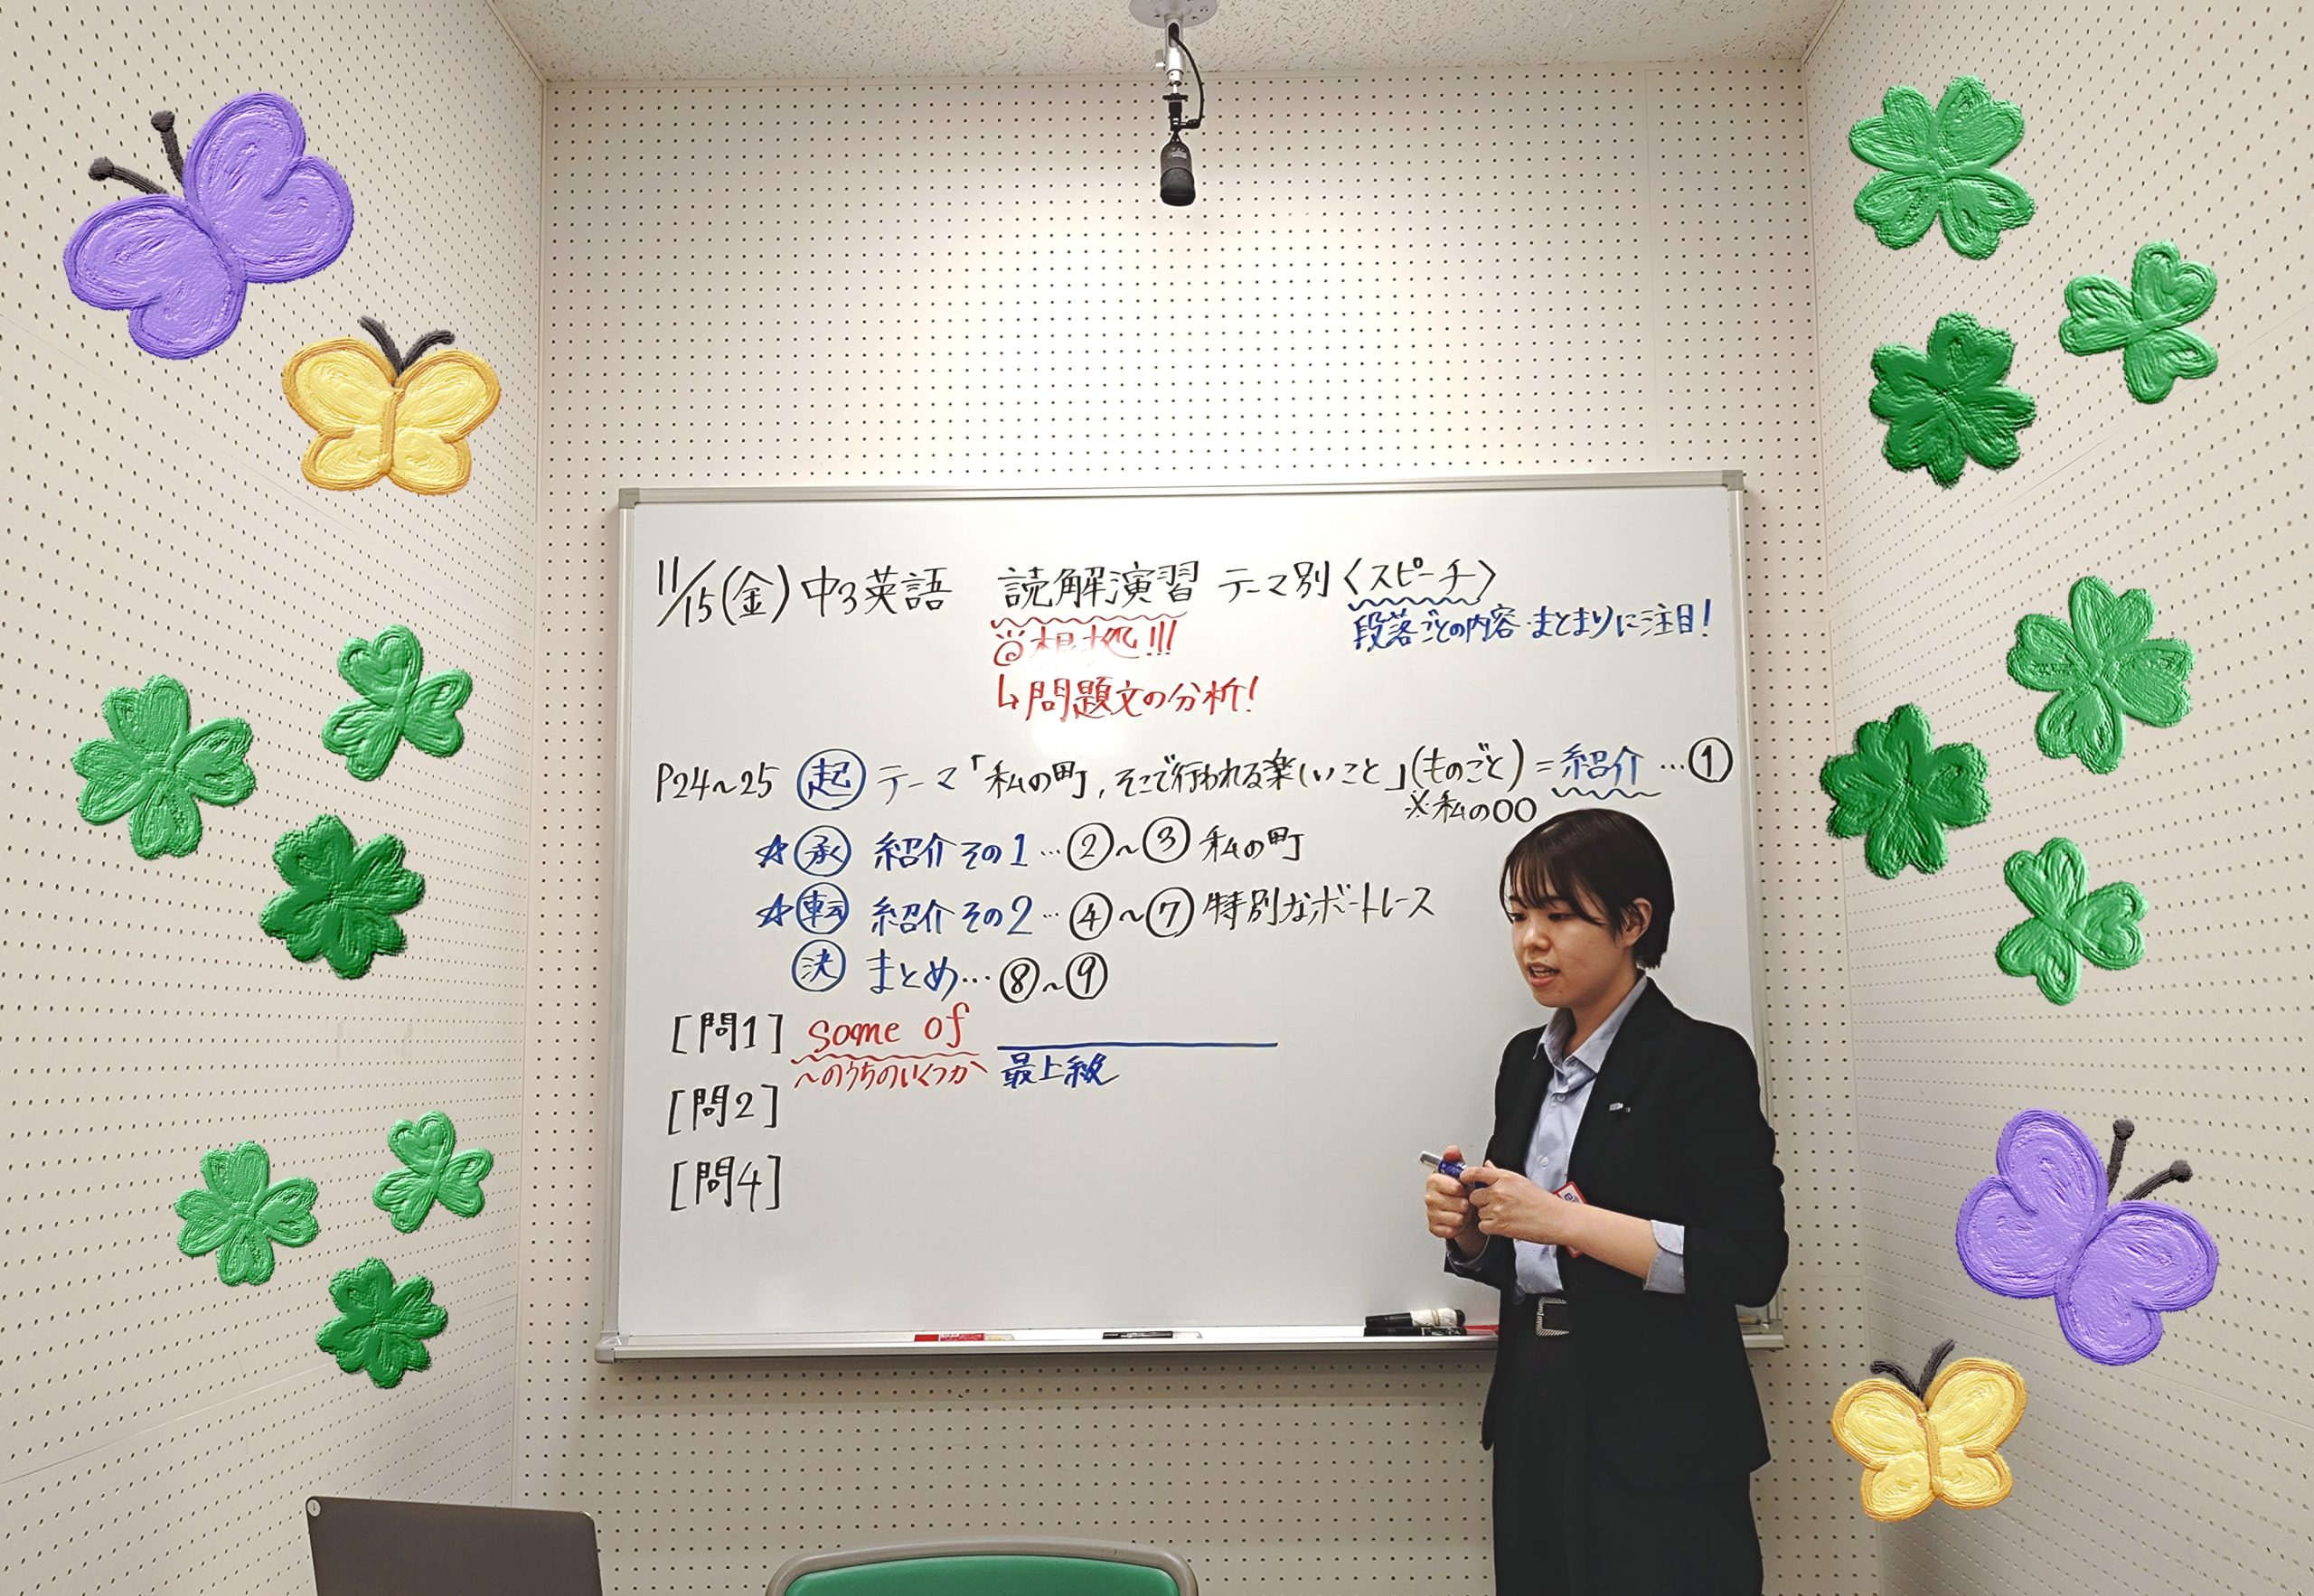 11/15(金)中3英語 読解演習 テーマ別〈スピーチ〉
◎根拠!!! 段落ごとの内容・まとまりに注目!
↳問題文の分析!
P24~25 起 テーマ「私の町,そこで行われる楽しいこと」(ものごと)=紹介…①
※私の〇〇
☆承 紹介その1…②~③私の町
☆転 紹介その2…④~⑦特別なボートレース
決 まとめ…⑧~⑨
[問1] some of
~のうちのいくつか 最上級
[問2]
[問4]